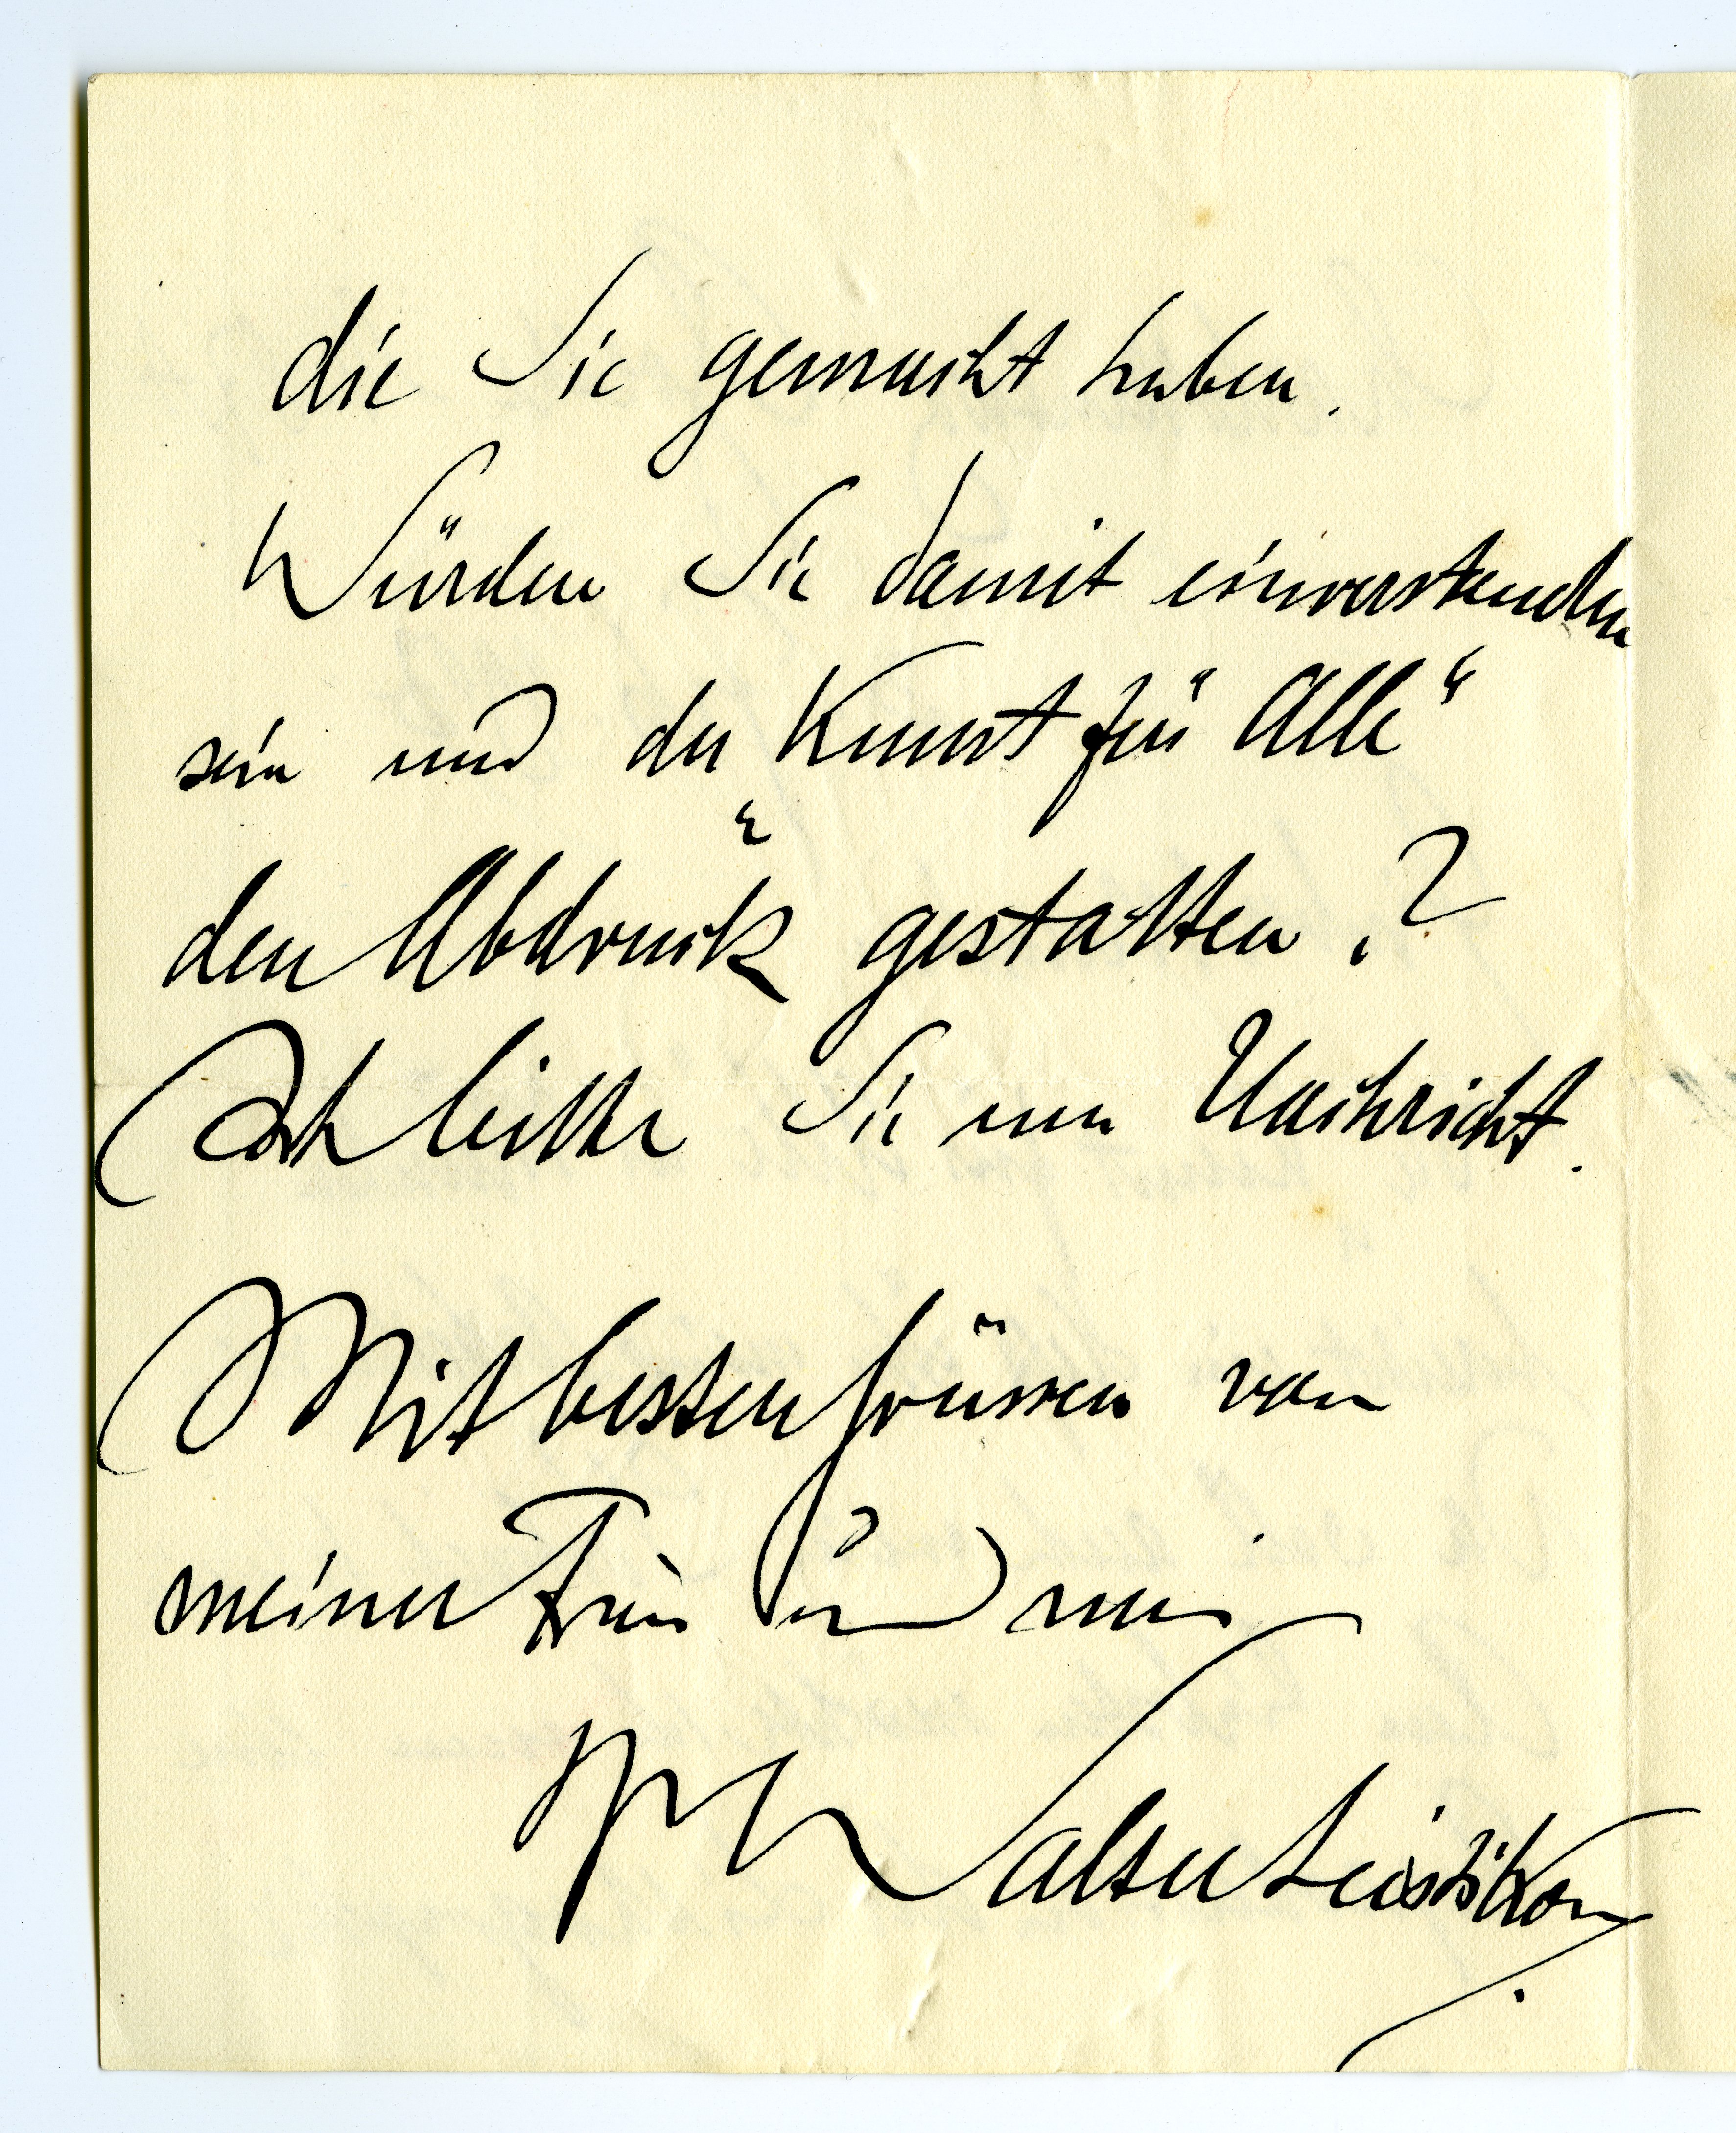 die Sie gemacht haben.
Würden Sie damit einverstanden
sein und der „Kunst für Alle“
den Abdruck gestatten?
Ich bitte Sie um Nachricht.
Mit besten Grüssen von
meiner Frau und mir
Ihr Walter Leistikow